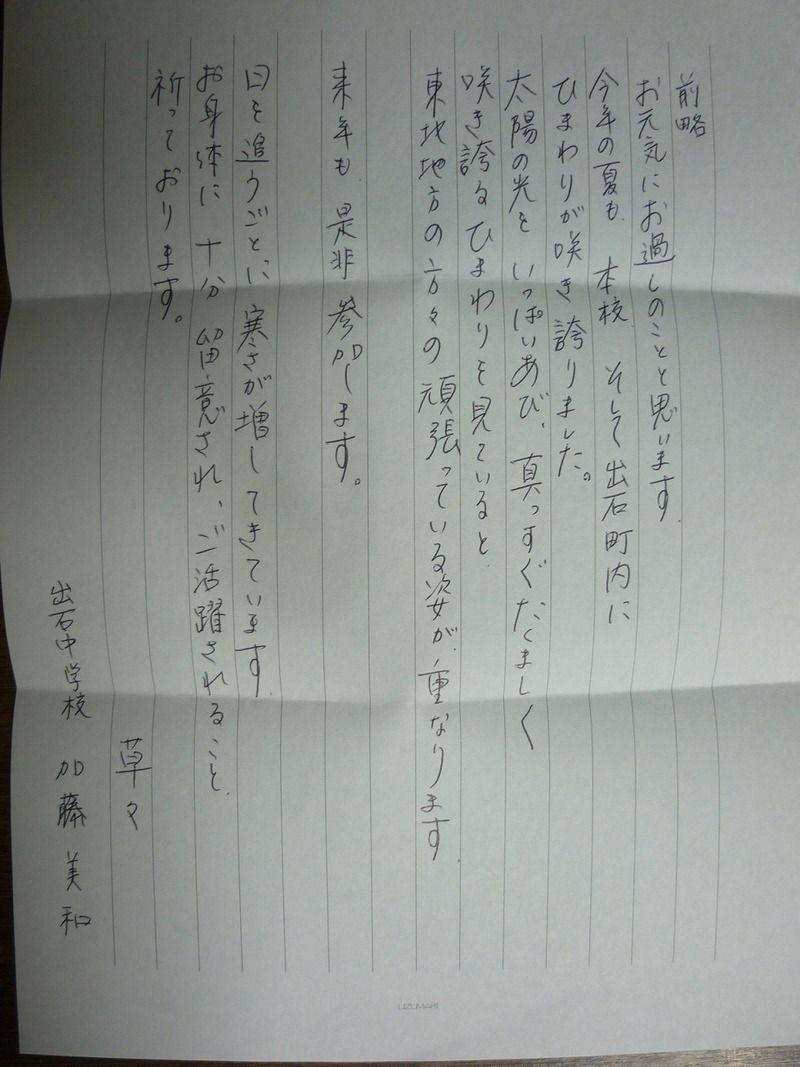 前略
お元気にお過しのことと思います。
今年の夏も、本校、そして出石町内に
ひまわりが咲き誇りました。
太陽の光を いっぱいあび、真っすぐたくましく
咲き誇るひまわりを見ていると、
東北地方の方々の頑張っている姿が、重なります。
来年も、是非 参加します。
日を追うごとに 寒さが増してきています。
お身体に 十分 留意され、ご活躍されること、
祈っております。
草々
出石中学校 加藤 美和
UZUMAKI